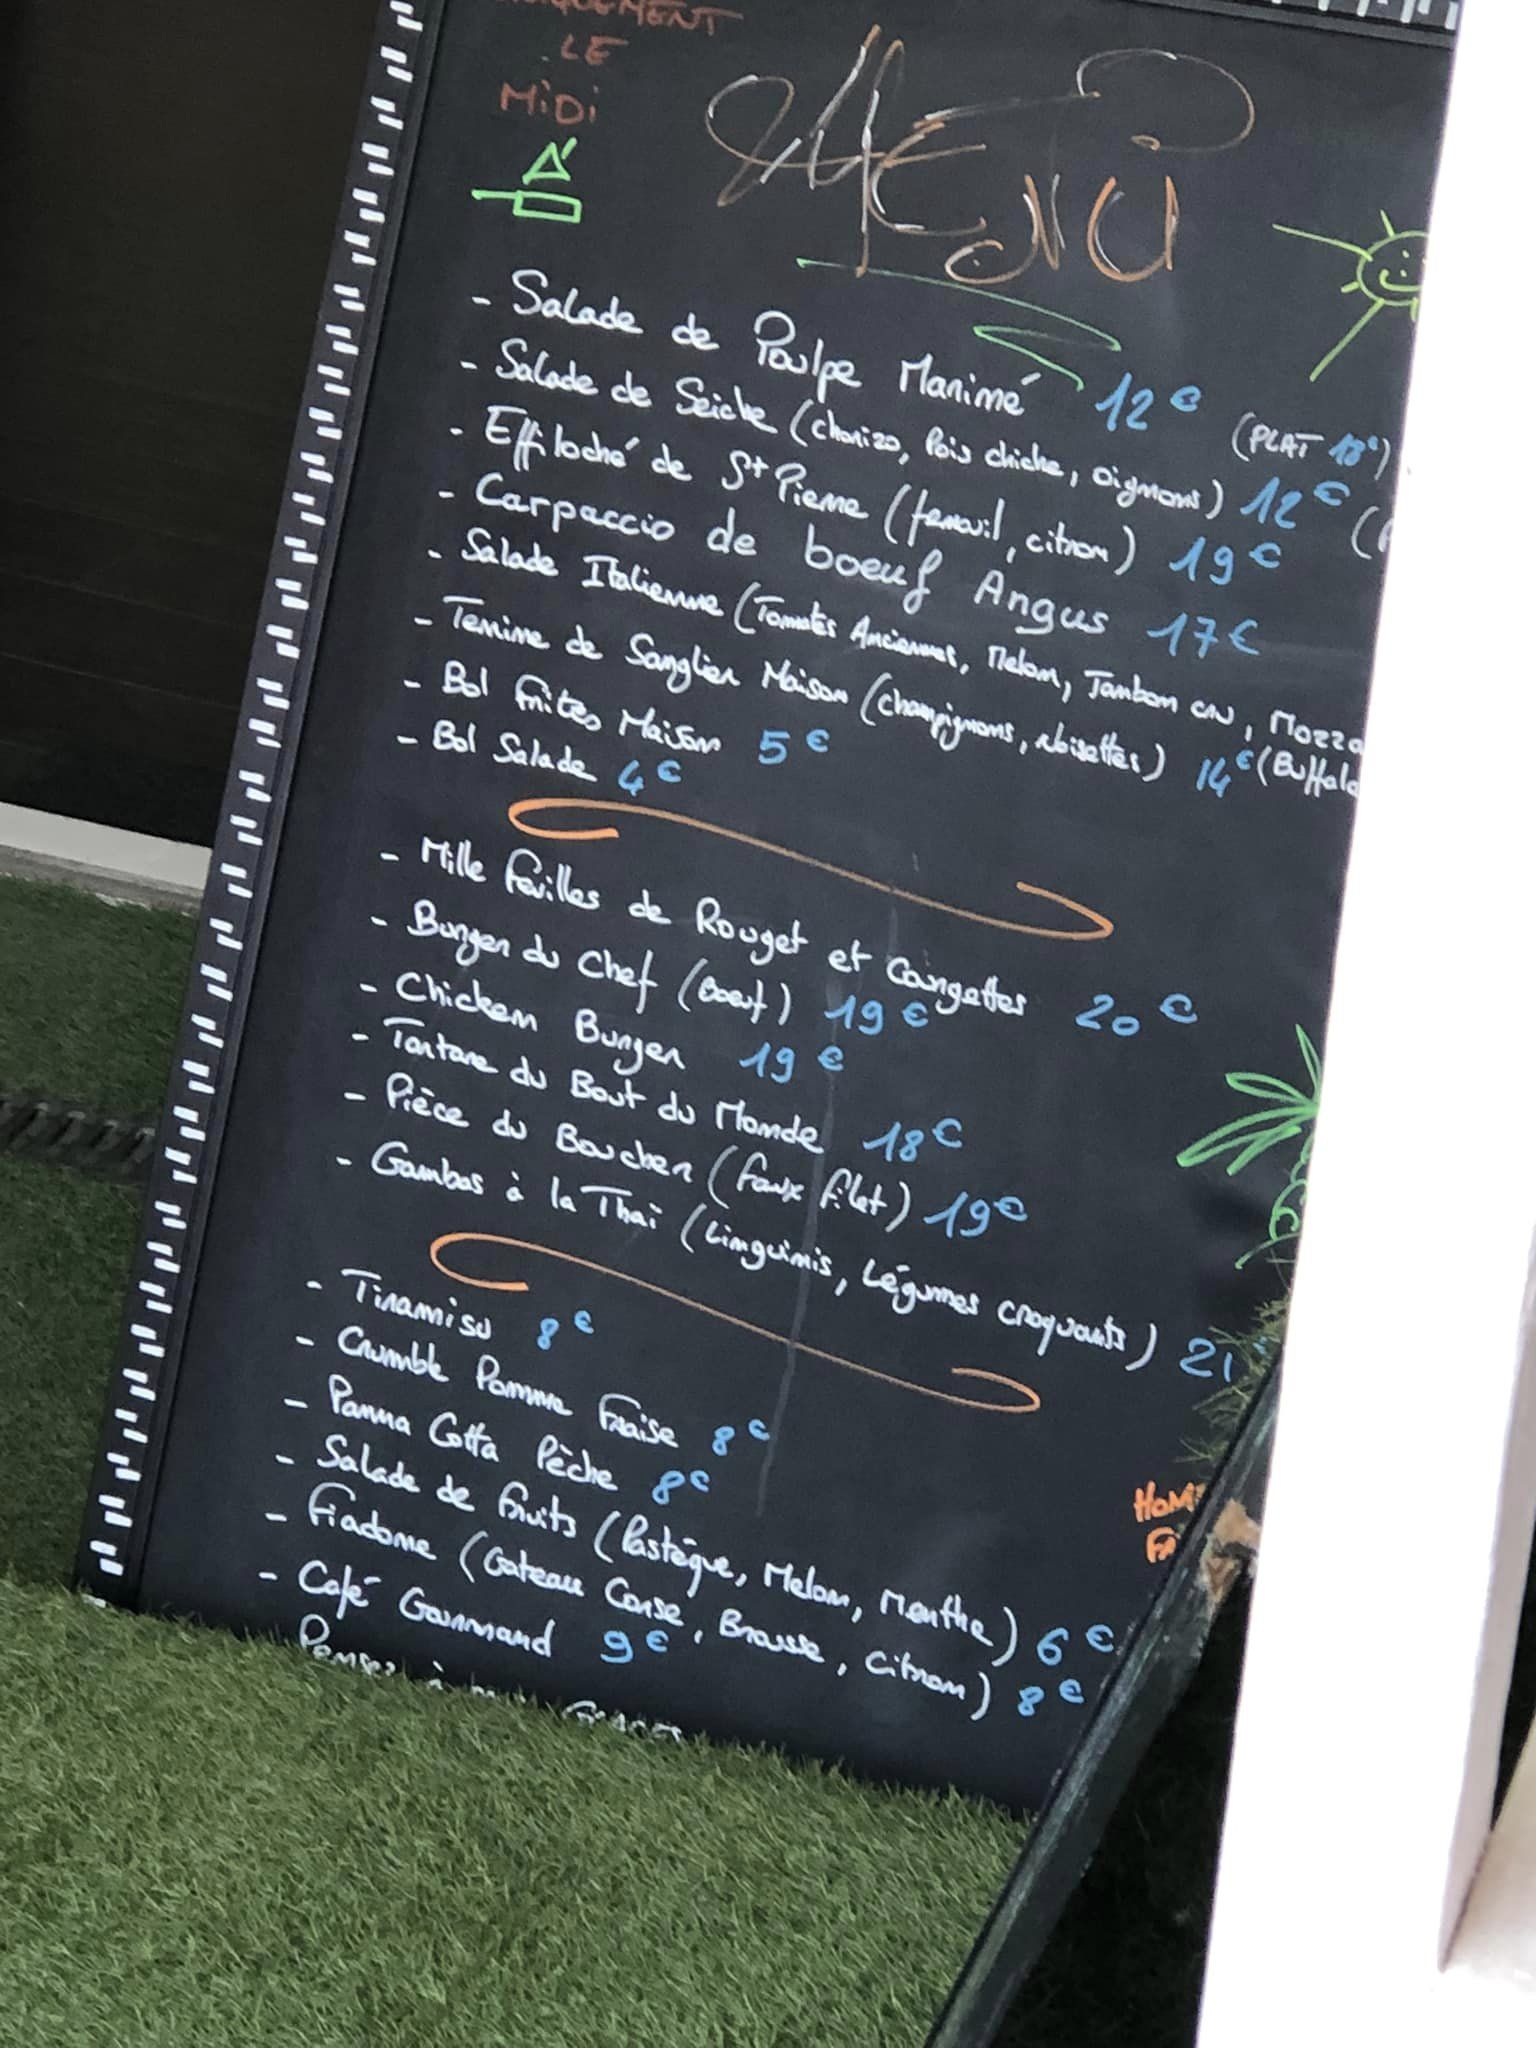 LE
MiDi
MENU
- Salade de Poulpe Marimé 12€ (PLAT 18€)
- Salade de Seiche (chorizo, Pois chiche, oignons) 12€ (
- Effiloché de St Pierre (fenouil, citron) 19€
- Carpaccio de boeuf Angus 17€
- Salade Italienne (Tomates Anciennes, Melon, Jambon cru, Mozza
- Terrine de Sanglier Maison (champignons, Noisettes) 14€ (Buffala
- Bol Frites Maison 5€
- Bol Salade 4€
- Mille feuilles de Rouget et Courgettes 20€
- Burger du Chef (Boeuf) 19€
- Chicken Burger 19€
- Tartare du Bout du Monde 18€
- Pièce du Boucher (faux filet) 19€
- Gambas à la Thaï (Linguinis, Légumes croquants) 21
- Tiramisu 8€
- Crumble Pomme Fraise 8€
- Panna Cotta Pêche 8€
- Salade de fruits (Pastèque, Melon, Menthe) 6€
- Fiadone (Gateau Corse, Brousse, citron) 8€
- Café Gourmand 9€
HOM
FA